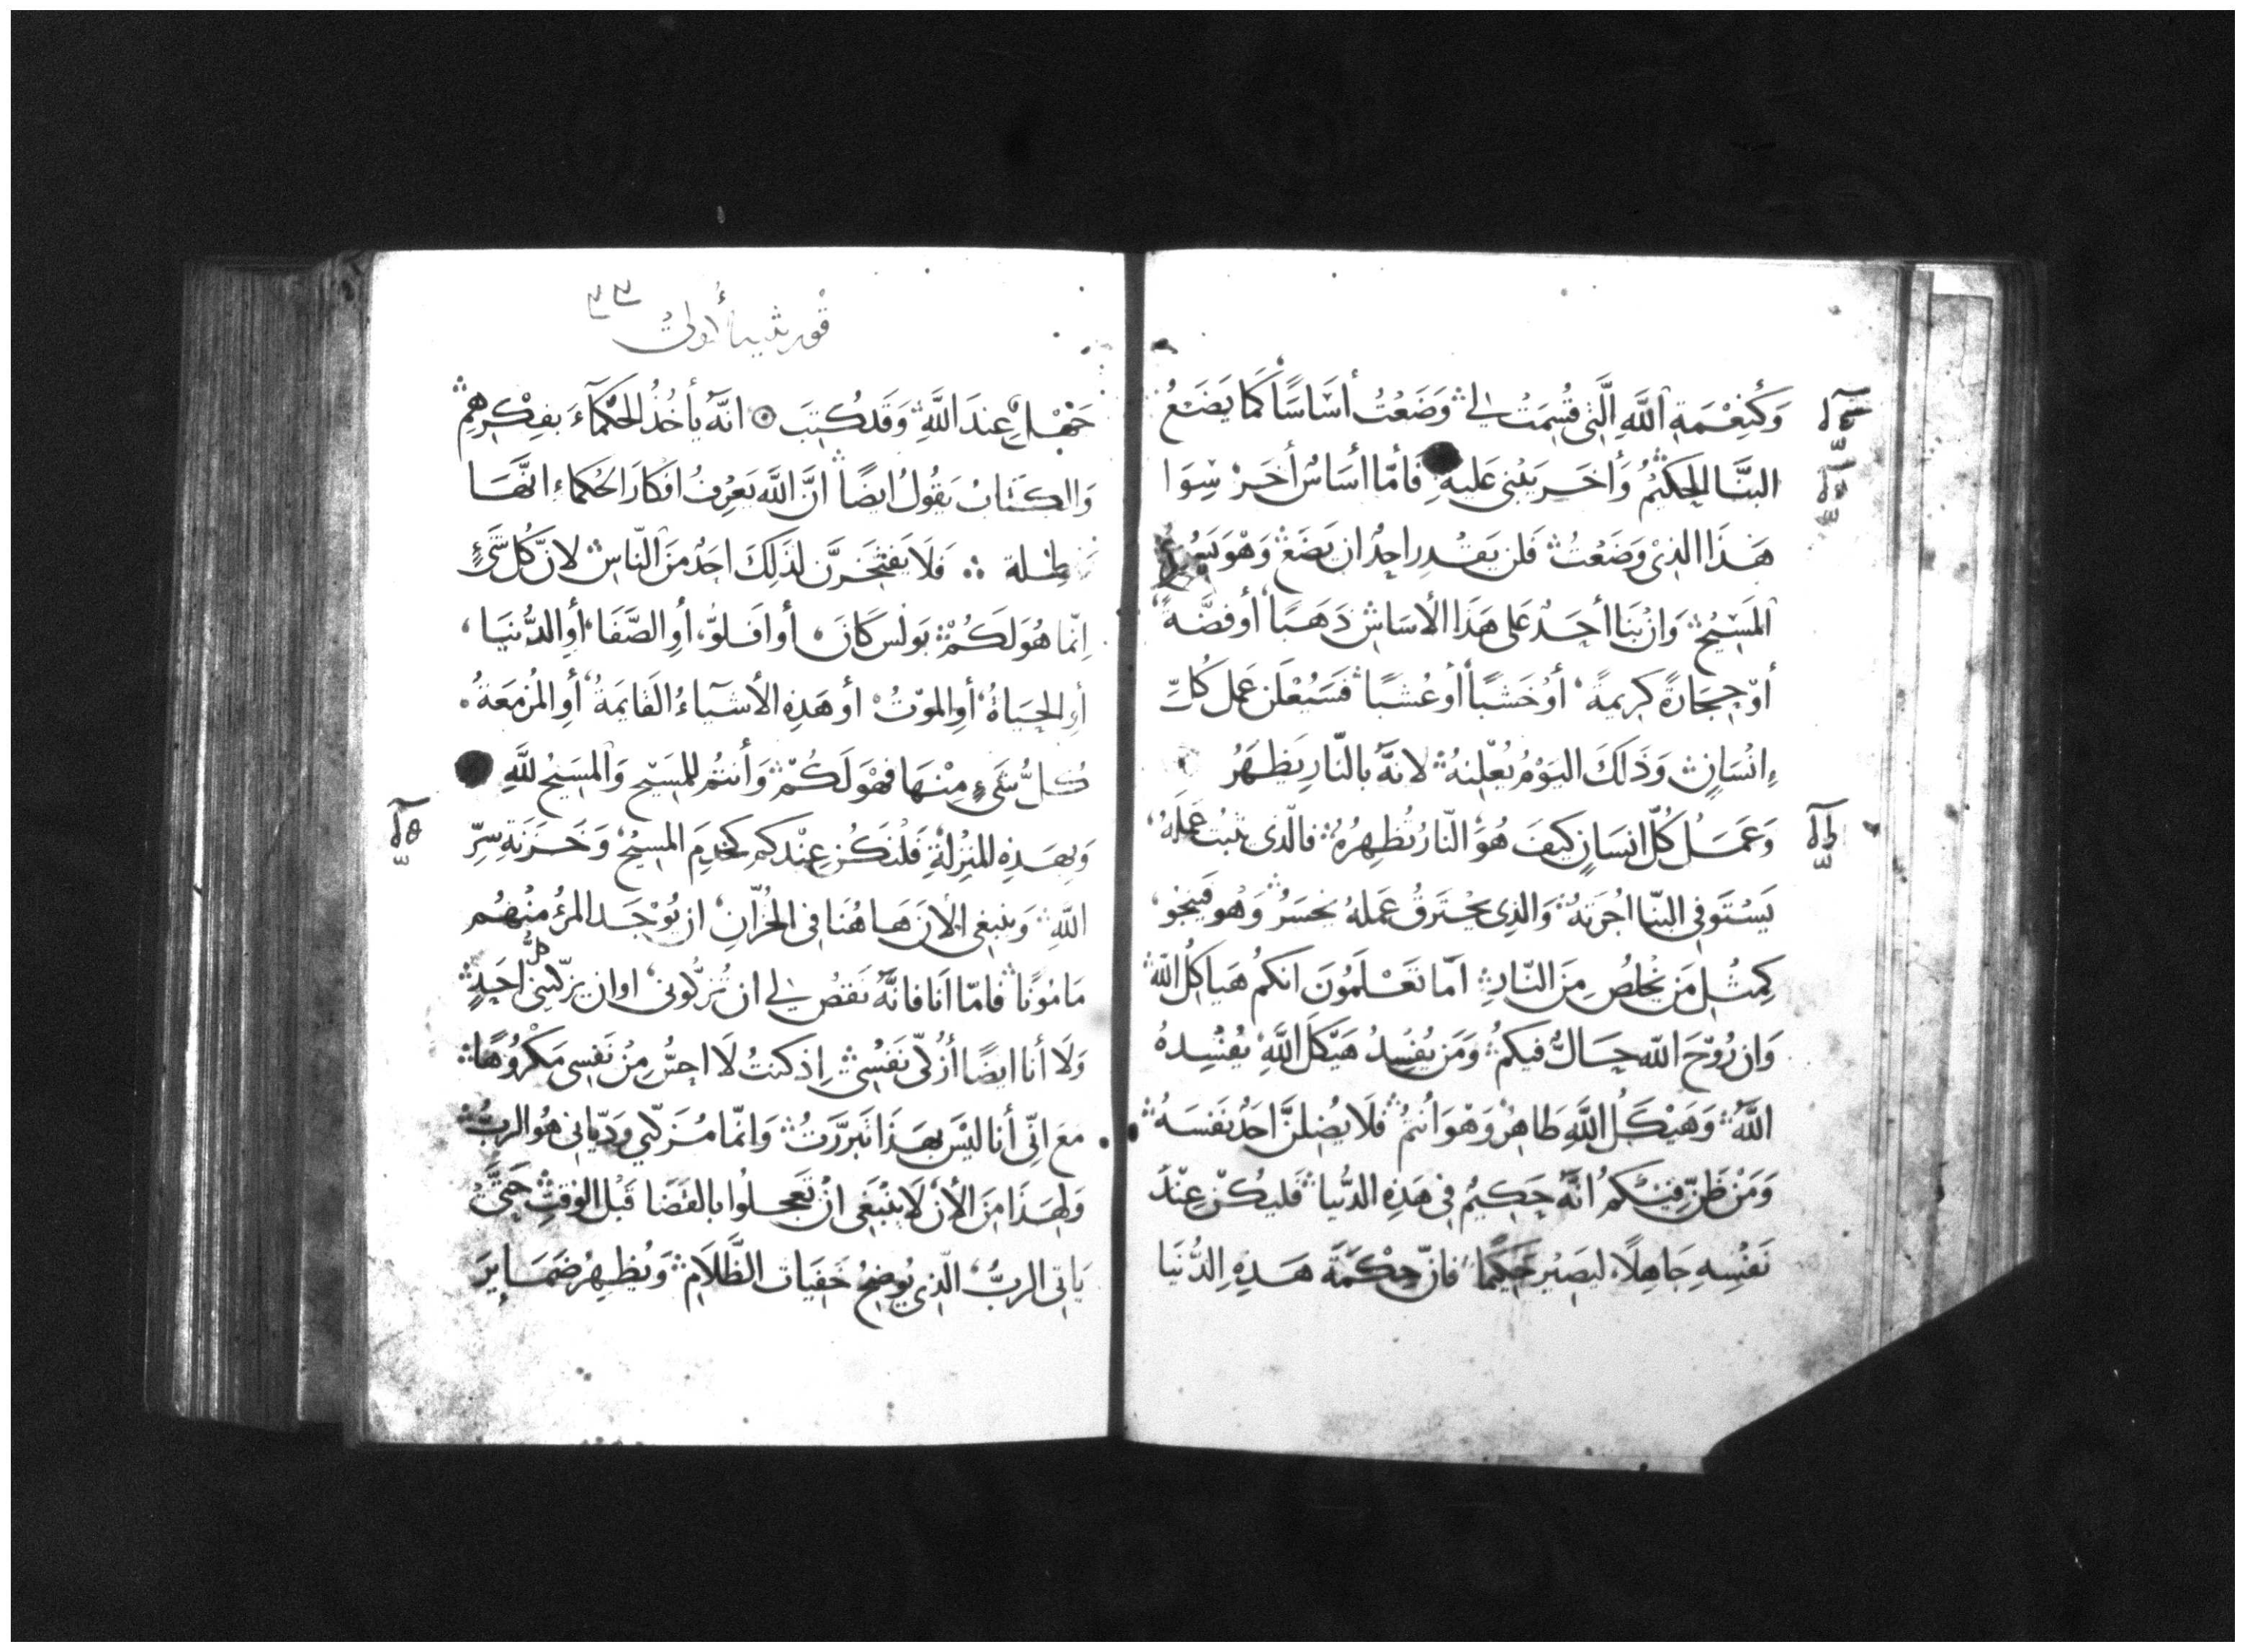 وَكَنِعْمَةِ اللَّهِ الَّتِي قُسِمَتْ لِي ۞ وَضَعْتُ أسَاسًا كَمَا يَضَعُ
البنَّا الحَكيْمُ وَأخَر يَبْنِي عَليهِ فَأمَّا أسَاسٌ أخَرْ سِوَا
هَذَا الذِيْ وَضَعْتُ فَلن يَقْدِر احِدٌ ان يَضَعْ وَهْوَ
المَسِيْحُ وَانْ بَنَا أحَدٌ عَلى هَذَا الأسَاسِ ذَهَبًا أو فضَّةً
أوْ حِجَارَةً كرِيمةً أوْ خَشَبًا أوْ عُشبًا فَسَيُعْلَن عَمل كُلِّ
إنْسَانٍ وَذَلكَ اليَوْمُ يُعْلِنهُ لانهَّ بالنّارِ يَظهَرُ
وَعَمَلُ كُلّ انسَانٍ كيفَ هُوَ النّارُ تُظهِرُهُ فالّذي يثبُت عَمَلهُ
يَسْتَوفي البنّا اجُرَتهُ وَالذِي يحْتَرقُ عَملهُ يخسَرُ وَهُو فَينجُو
كِمثْل مَن يخْلصُ مِنَ النّارِ امَا تَعْلَمُونَ انكمُ هَياكلُ اللّه
وَان رُوْحَ اللّه حَالٌّ فيكمْ وَمَن يُفْسِدُ هَيْكَلَ اللَّهِ يُفْسِدهُ
اللَّهُ وَهَيْكَلُ اللَّهِ طَاهِرٌ وَهْوَ أنتُمُ فلَا يُضِلنَّ احَدٌ نَفسَهُ
وَمَنْ ظَنّ فيْكمُ انهَّ حَكِيمٌ في هَذِهِ الدُّنيا فَليكُنْ عِنْدَ
نَفْسِهِ جَاهِلًا ليَصِيْرَ حَكِيمًا فانّ حِكْمَةَ هَذِهِ الدُّنيَا
٣٣
قورنثيه أولى
جَهْلٌ عِندَ اللَّهِ وَقَد كُتِبَ ۞ انهَّ يأخُذُ الحُكمآءَ بفِكْرِهِمْ
وَالكتَابُ يَقُولُ ايضًا انَّ اللَّه يَعْرِفُ افكارَ الحُكماءِ انَّهَا
بَاطِلة ۞ فَلَا يَفْتخَرَنَّ لذَلكَ احَدٌ مِنَ النّاسِ لانّ كُل شَيْءٍ
اِنّما هُوَ لَكُمْ بَولس كَانَ أو افَلوُّ أوِ الصَّفَا أوِ الدُّنيَا
أوِ الحَيَاةُ أوِ الموْتُ أو هَذِهِ الأشيَاءُ القَايمَةُ أوِ المُزْمعَةُ
كُلُّ شَيءٍ مِنْهَا فَهْوَ لَكُمْ وَأنتمُ للمَسِيْحِ وَالمسَيِحُ للَّهِ
وَبِهَذِهِ المنزِلةِ فَلْنَكُن عِنْدَكمِ كخَدَمِ المسِيْحِ وَخَزَنَةِ سِرِّ
اللَّهِ وَينبغي الأنَ هَاهُنَا في الخُزّانِ ان يُوْجَد المَرْءُ مِنْهُم
مَامُونًا فامّا اَنا فانهَّ نَقصٌ لي ان تُزكُّوني او ان يزكّيني كلُّ احَدٍ
وَلَا أنا ايضًا أزُكّي نَفْسِي اِذ كنتُ لَا احِسُّ مِنْ نَفسِي مَكْرُوهًا
مَعَ انِّي أنا ليْسَ بهَذَا تَبرَّرتُ وَانمّا مُزَكّي وَدَيّاني هُو الربُّ
وَلهَذَا مِنَ الأنَ لَا ينْبَغي انْ تَعجلُوا بالقَضَا قَبْل الوَقتِ حَتَّى
يَاتي الربُّ الّذِي يُوضِحُ خَفيَات الظَّلَامِ وَيُظهِرُ ضَمَايرَ